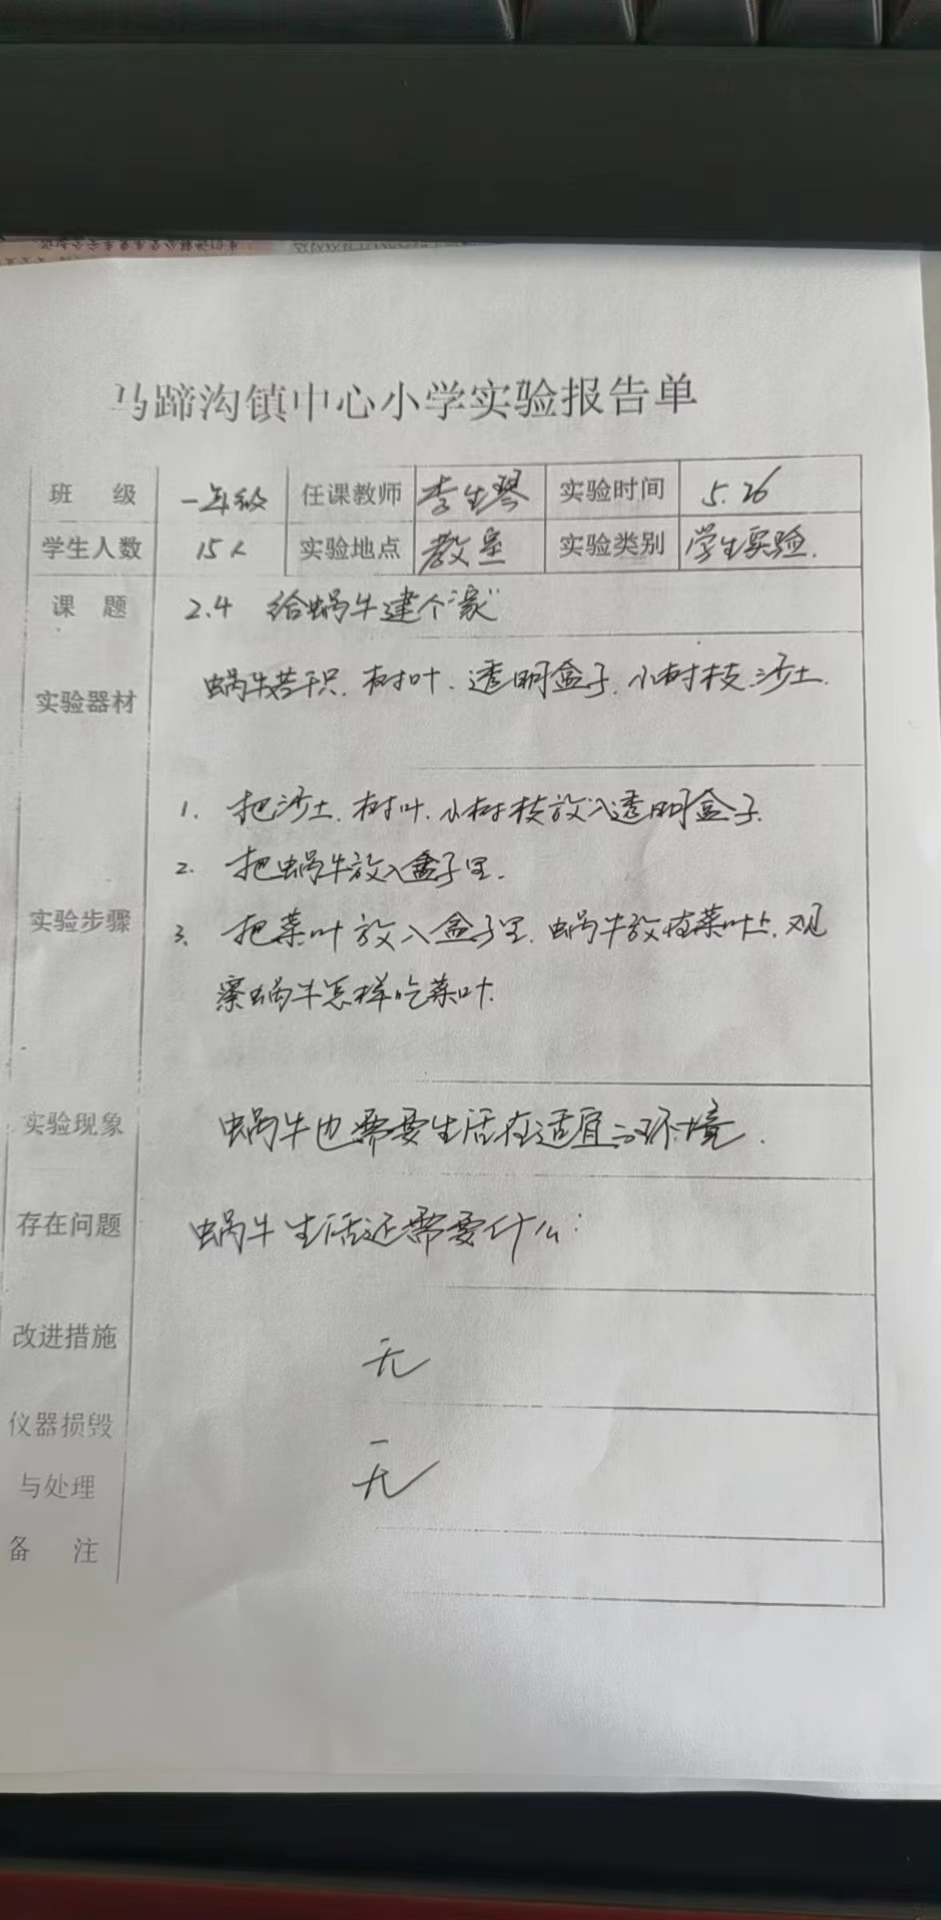 马蹄沟镇中心小学实验报告单
班 级 一年级 任课教师 李生琴 实验时间 5.26
学生人数 15人 实验地点 教室 实验类别 学生实验.
课 题 2.4 给蜗牛建个"家"
实验器材 蜗牛若干只.树叶.透明盒子.小树枝.沙土.
1. 把沙土.树叶.小树枝放入透明盒子.
2. 把蜗牛放入盒子里.
实验步骤 3. 把菜叶放入盒子里.蜗牛放在菜叶上.观
察蜗牛怎样吃菜叶.
实验现象 蜗牛也需要生活在适宜的环境.
存在问题 蜗牛生活还需要什么:
改进措施 无
仪器损毁
与处理 无
备 注